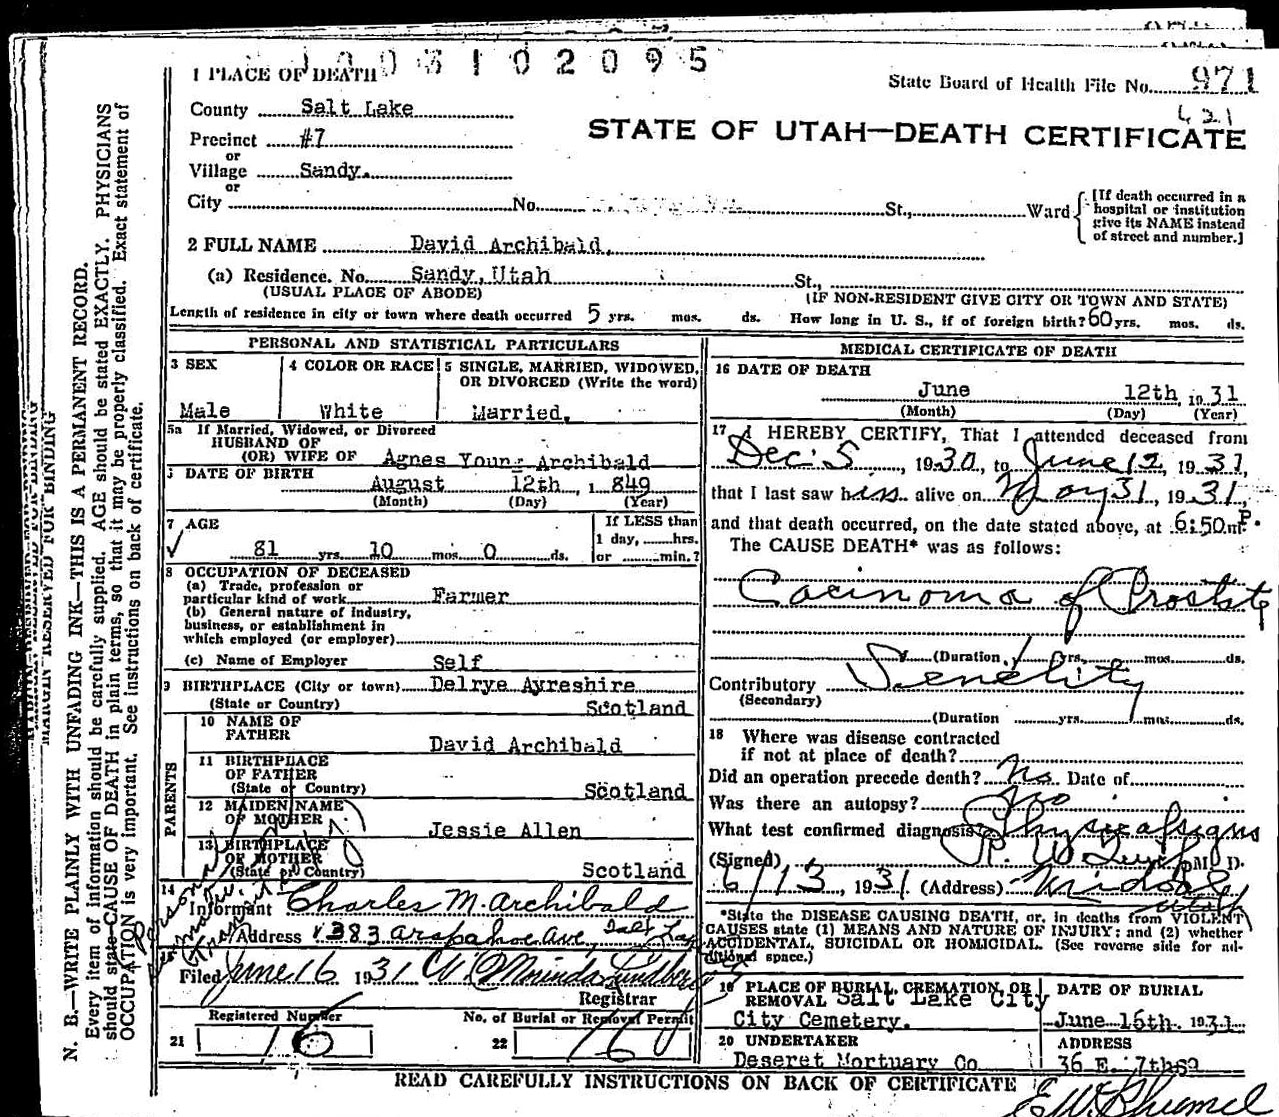 1003102095
1 PLACE OF DEATH
State Board of Health File No. 971
County Salt Lake
421
Precinct #7
STATE OF UTAH—DEATH CERTIFICATE
or
Village Sandy.
or
City No. St., Ward
[If death occurred in a hospital or institution give its NAME instead of street and number.]
2 FULL NAME David Archibald.
(a) Residence. No. Sandy, Utah St.,
(USUAL PLACE OF ABODE) (IF NON-RESIDENT GIVE CITY OR TOWN AND STATE)
Length of residence in city or town where death occurred 5 yrs. mos. ds. How long in U. S., if of foreign birth? 60 yrs. mos. ds.
PERSONAL AND STATISTICAL PARTICULARS
3 SEX
Male
4 COLOR OR RACE
White
5 SINGLE, MARRIED, WIDOWED, OR DIVORCED (Write the word)
Married.
5a If Married, Widowed, or Divorced
HUSBAND OF
(OR) WIFE OF Agnes Young Archibald
DATE OF BIRTH
August 12th, 1849
(Month) (Day) (Year)
7 AGE
81 yrs. 10 mos. 0 ds.
If LESS than
1 day, hrs.
or min.?
8 OCCUPATION OF DECEASED
(a) Trade, profession or
particular kind of work Farmer
(b) General nature of industry,
business, or establishment in
which employed (or employer)
(c) Name of Employer Self
9 BIRTHPLACE (City or town) Delrye Ayreshire
(State or Country) Scotland
PARENTS
10 NAME OF
FATHER David Archibald
11 BIRTHPLACE
OF FATHER
(State or Country) Scotland
12 MAIDEN NAME
OF MOTHER Jessie Allen
13 BIRTHPLACE
OF MOTHER
(State or Country) Scotland
14
Informant Charles M. Archibald
Address 383 Arapahoe Ave, Salt Lake
15
Filed June 16 1931
Registrar
Registered Number
21 16
No. of Burial or Removal Permit
22 16
MEDICAL CERTIFICATE OF DEATH
16 DATE OF DEATH
June 12th, 1931
(Month) (Day) (Year)
17 I HEREBY CERTIFY, That I attended deceased from
Dec. 5, 1930, to June 12, 1931,
that I last saw his alive on May 31, 1931,
and that death occurred, on the date stated above, at 6:50 P m.
The CAUSE DEATH* was as follows:
Cacinoma of Prostate
(Duration 1 yrs. mos. ds.
Contributory Senelity
(Secondary)
(Duration yrs. mos. ds.
18 Where was disease contracted
if not at place of death?
Did an operation precede death? No. Date of
Was there an autopsy? No
What test confirmed diagnosis Physical signs
(Signed) M. D.
6/13, 1931 (Address) Midvale
Utah
*State the DISEASE CAUSING DEATH, or, in deaths from VIOLENT
CAUSES state (1) MEANS AND NATURE OF INJURY: and (2) whether
ACCIDENTAL, SUICIDAL OR HOMICIDAL. (See reverse side for ad-
ditional space.)
19 PLACE OF BURIAL, CREMATION, OR
REMOVAL Salt Lake City
City Cemetery.
DATE OF BURIAL
June 15th. 1931
20 UNDERTAKER
Deseret Mortuary Co
ADDRESS
36 E. 7th So
READ CAREFULLY INSTRUCTIONS ON BACK OF CERTIFICATE
MARGIN RESERVED FOR BINDING
N. B.—WRITE PLAINLY WITH UNFADING INK—THIS IS A PERMANENT RECORD.
Every item of information should be carefully supplied. AGE should be stated EXACTLY. PHYSICIANS
should state CAUSE OF DEATH in plain terms, so that it may be properly classified. Exact statement of
OCCUPATION is very important. See instructions on back of certificate.